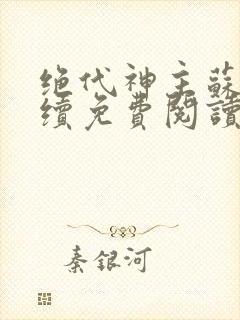 绝代神主蘇
續免費閱讀
秦銀河